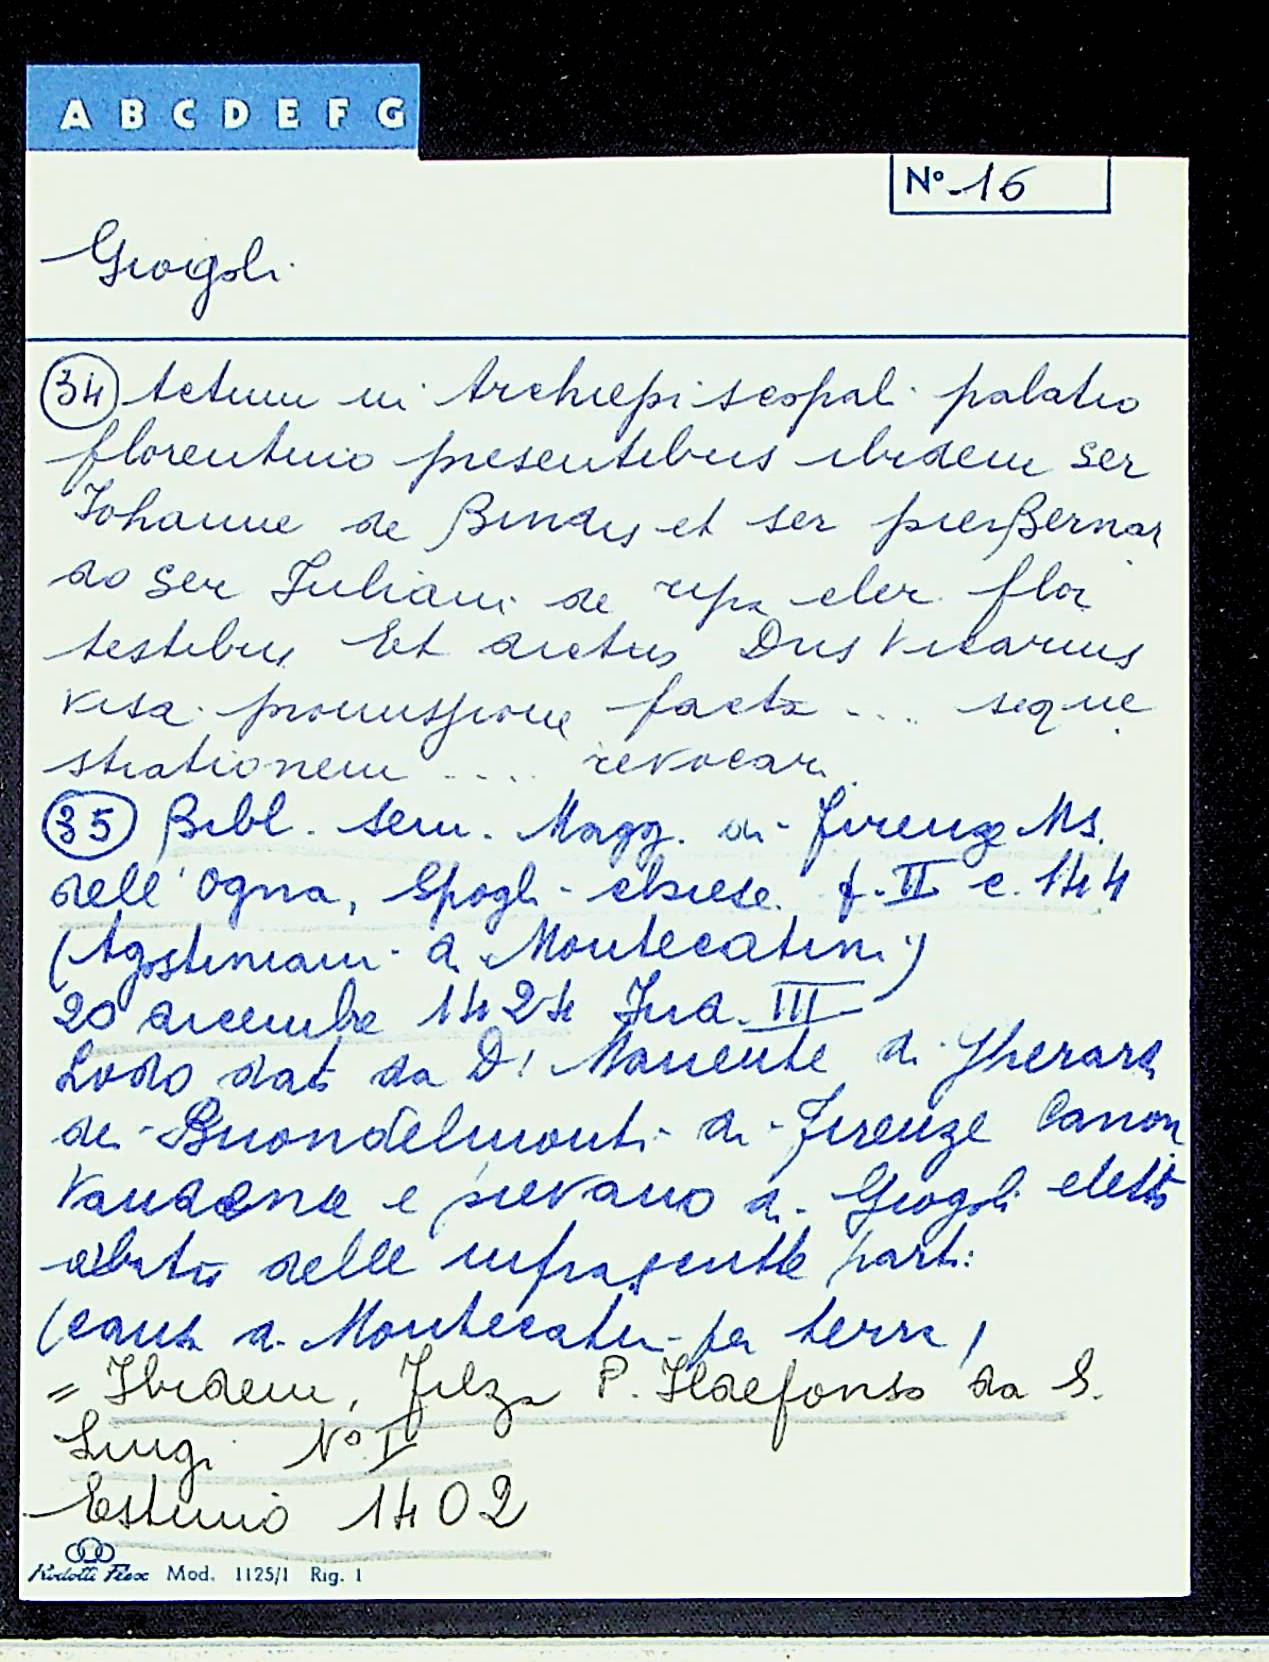 A B C D E F G
Nº 16
Giogoli
34 Actum in Archiepiscopali palatio
florentino presentibus ibidem ser
Iohanne de Bindis et ser pier Bernar
do ser Iuliani de ripa cler. flor
testibus Et dictus Dnus Vicarius
visa promissione facta .... seque
strationem .... revocar.
35 Bibl. Sem. Magg. di Firenze Ms.
dell'Ogna, Spogli chiese f. II c. 144
(Agostiniani di Montecatini)
20 dicembre 1424 Ind. III
Lodo dato da D! Manente di Gherard
dei Buondelmonti di Firenze Canon
e pievano di Giogoli eletto
delle parti:
a Montecatini per terra)
= Ibidem, Filza P. Ildefonso da S.
Luigi Nº I
Estimo 1402
Mod. 1125/1 Rig. 1